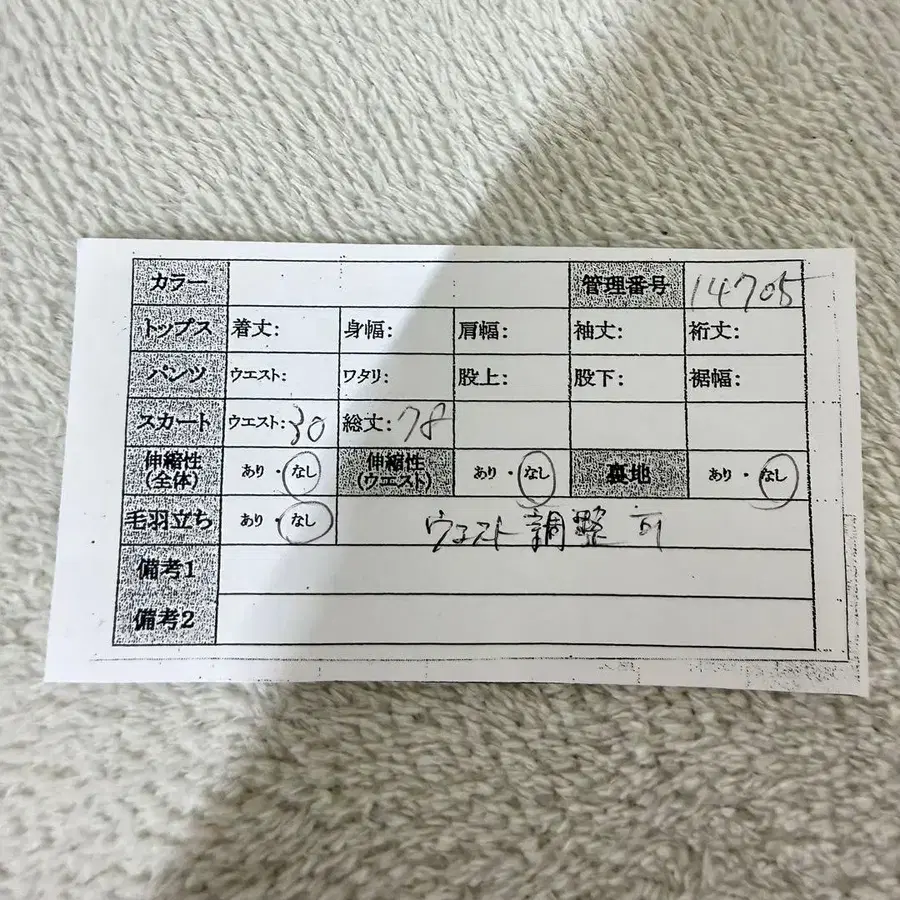 カラー 管理番号 14705
トップス 着丈: 身幅: 肩幅: 袖丈: 裄丈:
パンツ ウエスト: ワタリ: 股上: 股下: 裾幅:
スカート ウエスト:30 総丈:78
伸縮性(全体) あり・なし 伸縮性(ウエスト) あり・なし 裏地 あり・なし
毛羽立ち あり・なし ウエスト調整可
備考1
備考2